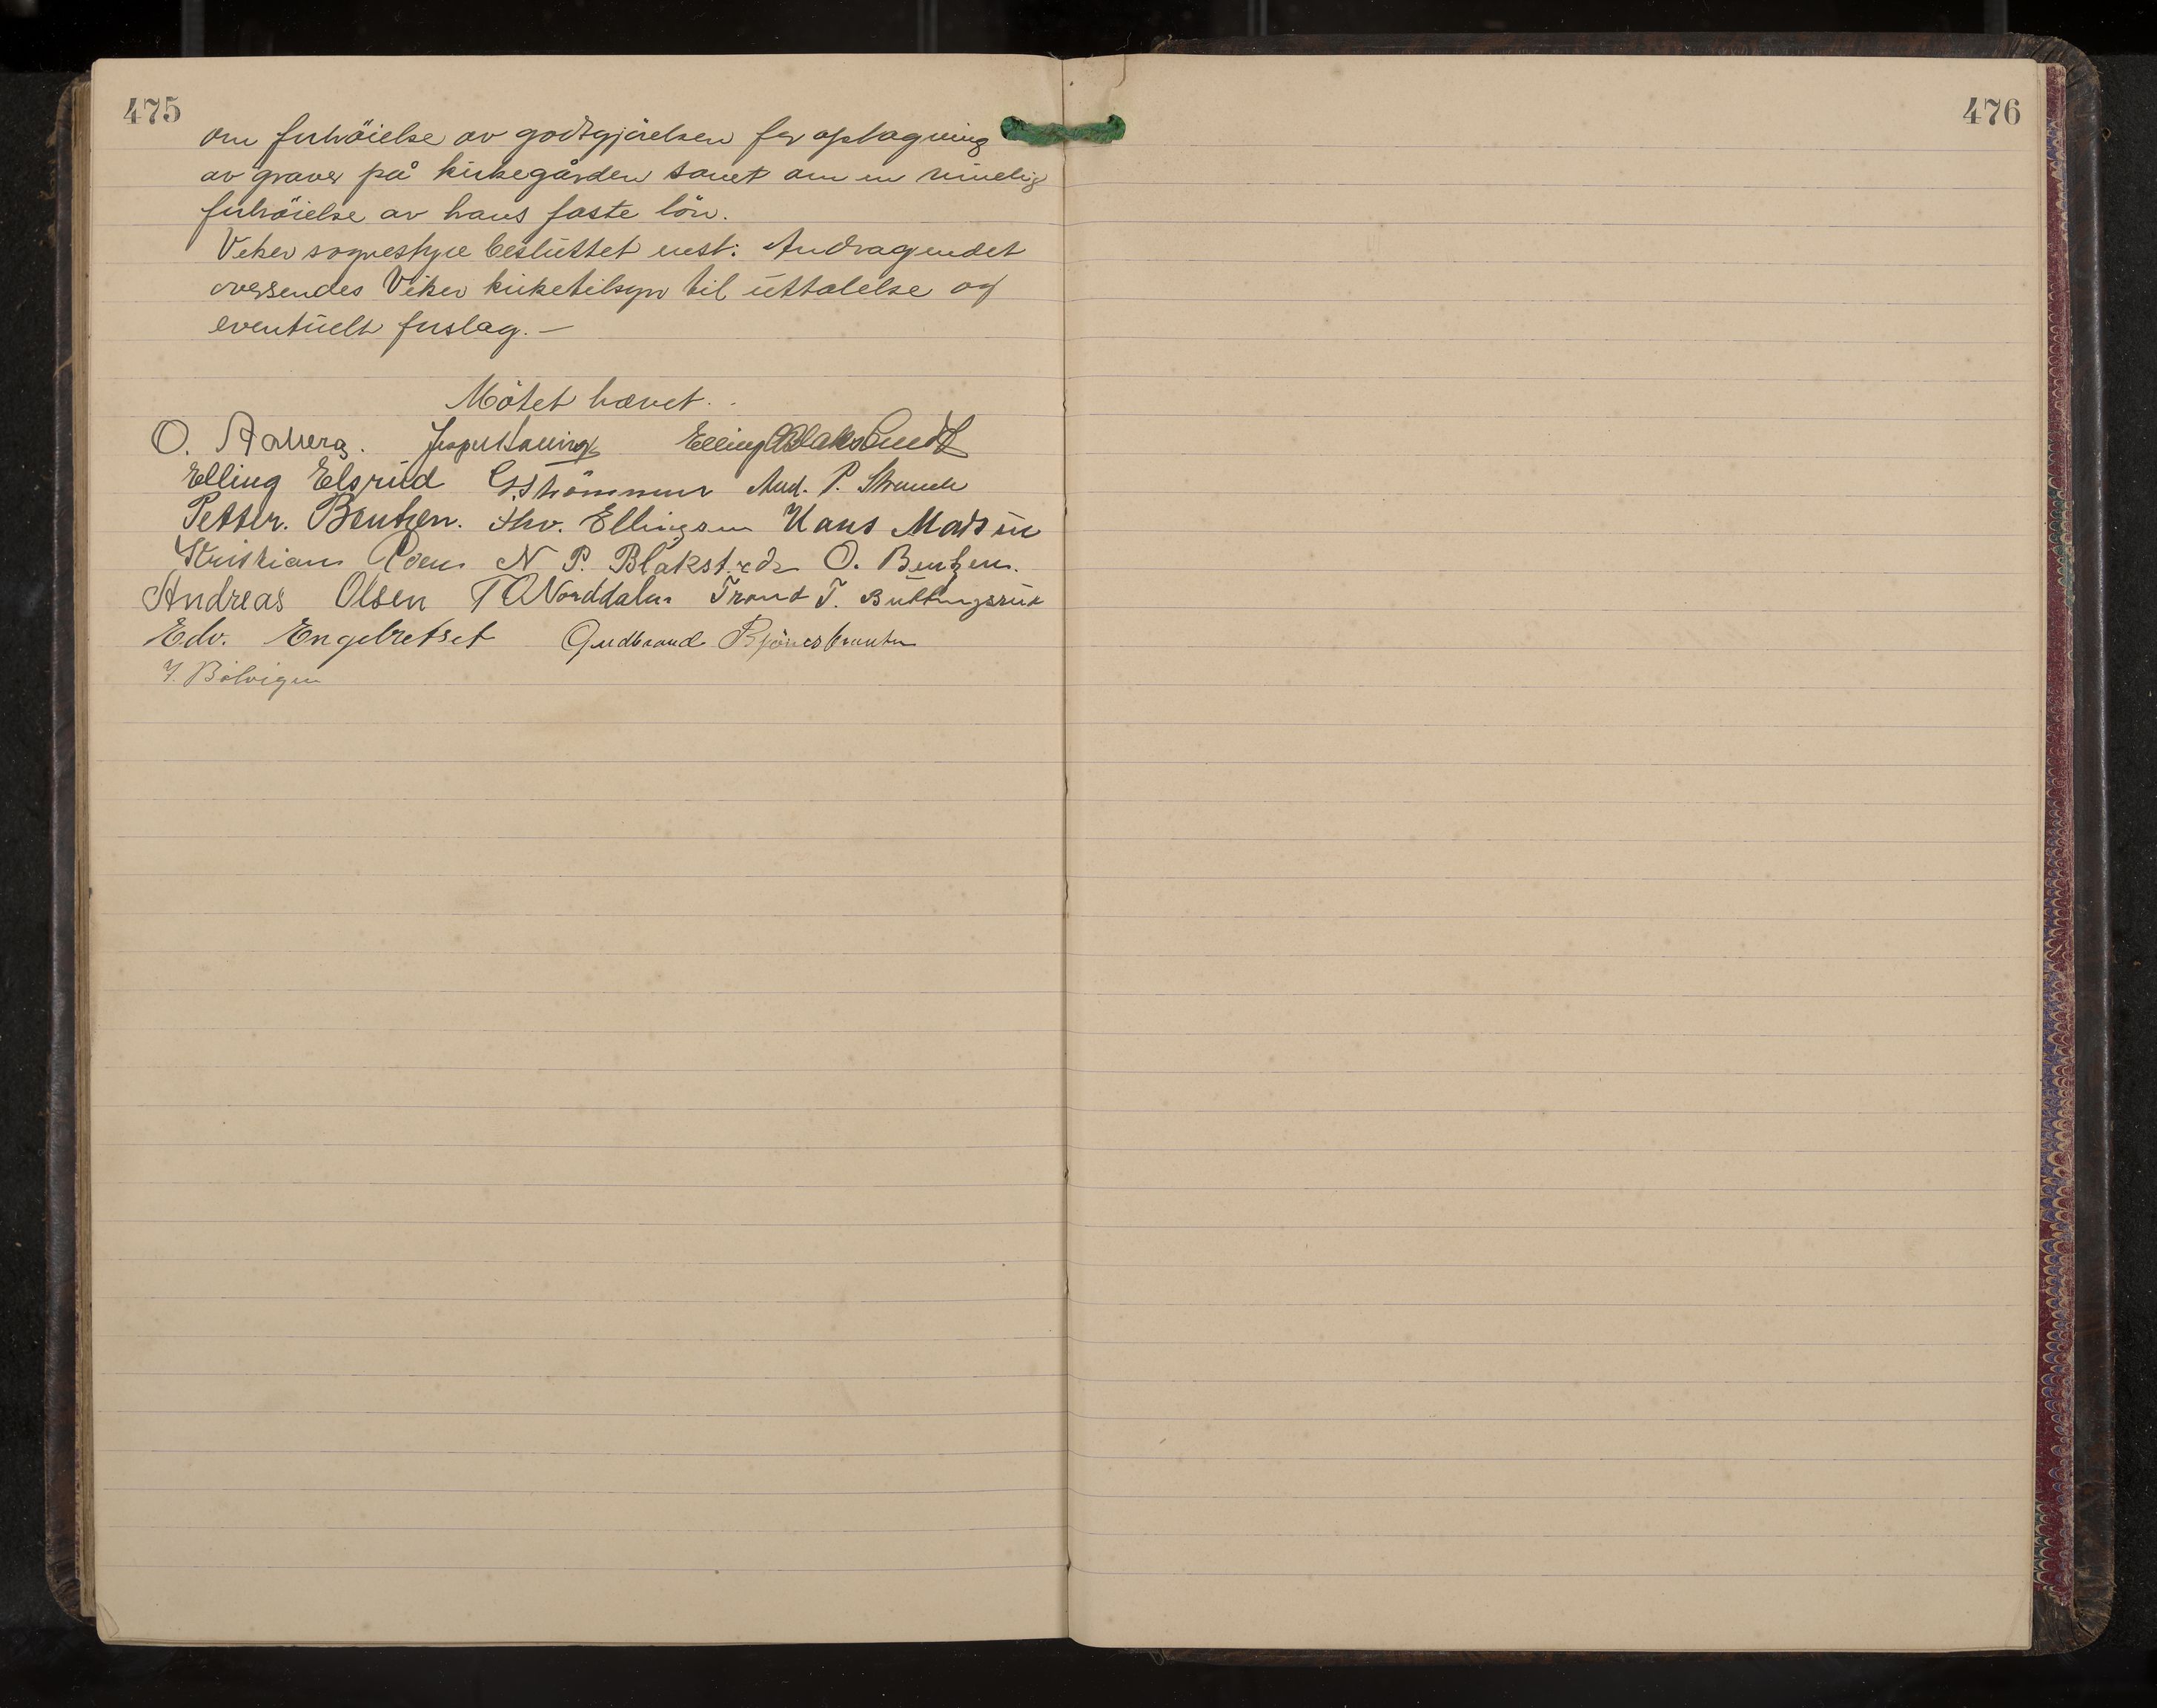 475
om forhöielse av godtgjörelsen for optagning
av graver på kirkegården samt om en rimelig
forhöielse av hans faste lön.
Viker sognestyre besluttet enst: Andragendet
oversendes Viker kirketilsyn til uttalelse og
eventuelt forslag. —
Mötet hævet.
O. Aaberg. Elling Blakstvedt
Elling Elsrud G. Strömmen And. P. Strande
Petter. Bentzen. Thv. Ellingsen Hans Madsen
Kristian Roen N P. Blakstvedt O. Bentzen.
Andreas Olsen T O Norddalen Trond T. Buttingsrud
Edv. Engebretset Gudbrand
476